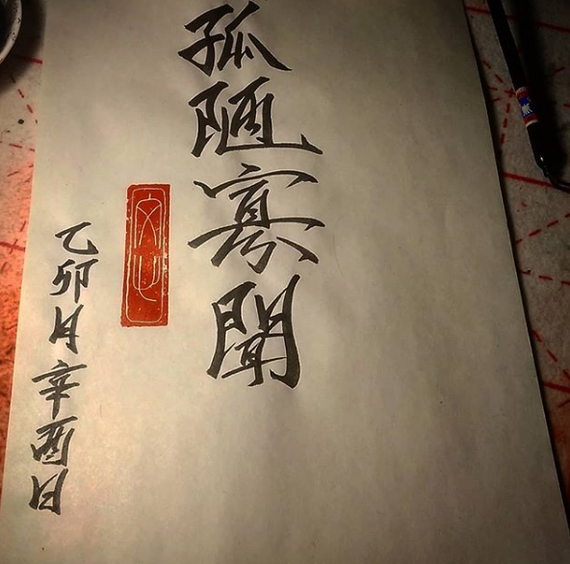 孤陋寡聞
乙卯月辛酉日